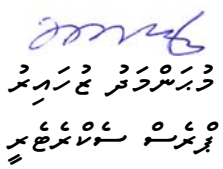 މުޙައްމަދު ޒުހައިރު
ޕްރެސް ސެކްރެޓަރީ